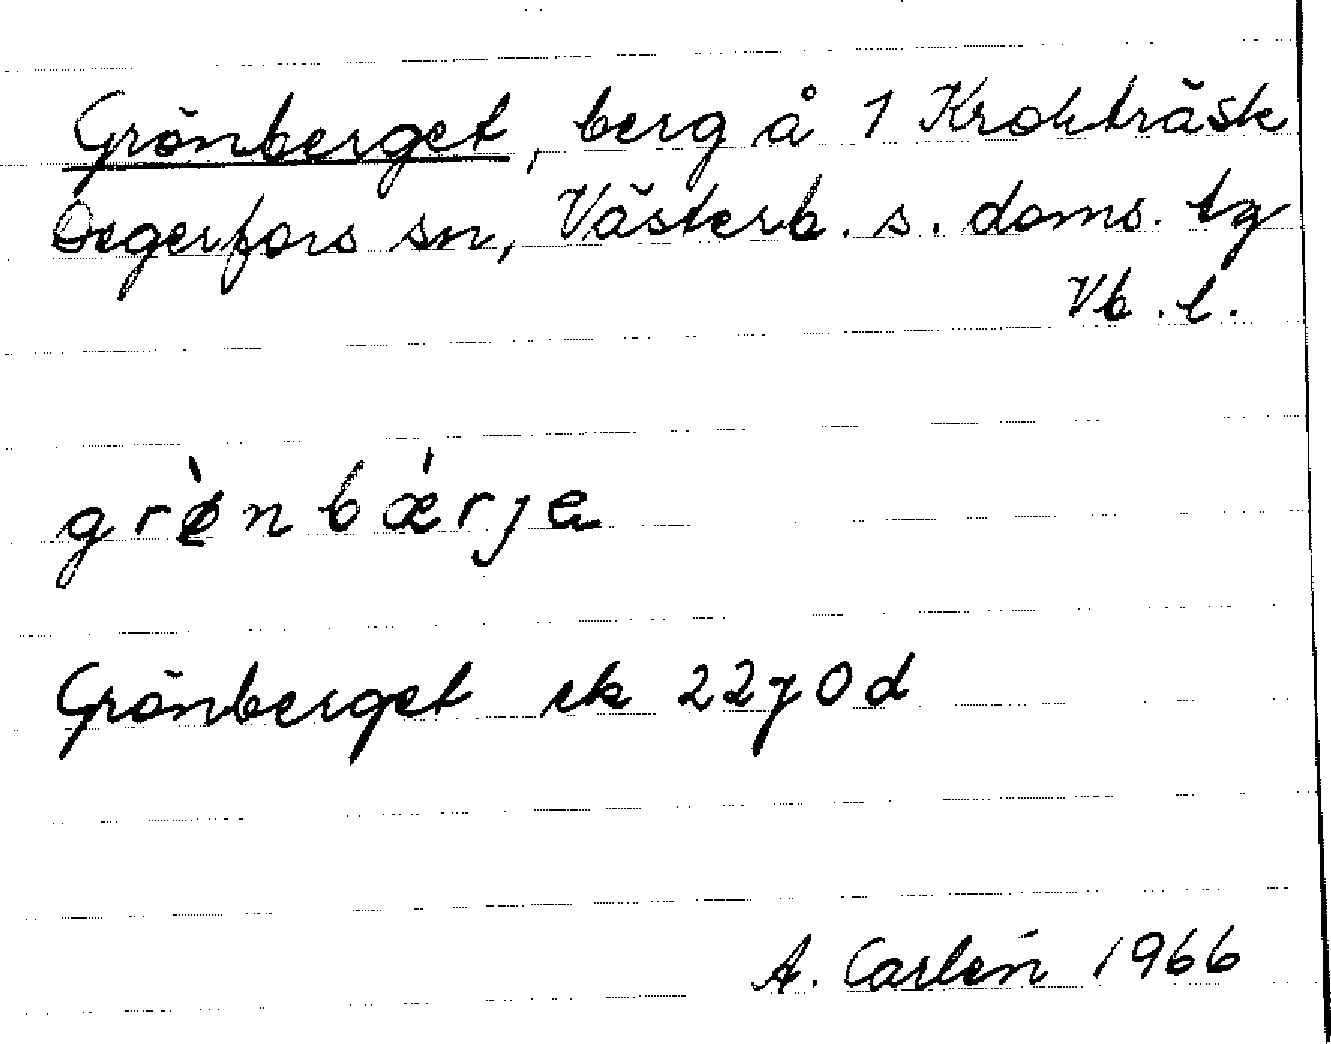 Grönberget, berg å 1 Krokträsk
Degerfors sn, Västerb. s. doms. tg
Vb. l.
grø̀nbǽrja
Grönberget ek 22J0d
A. Carlén 1966